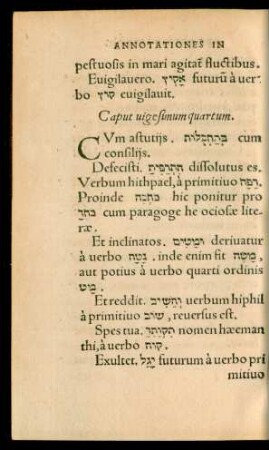 ANNOTATIONES IN
pestuosis in mari agitat̃ fluctibus.
Euigilauero. אָקִיץ futurũ à uer-
bo קוּץ euigilauit.
Caput uigesimum quartum.
CVm astutijs. בְּתַחְבֻּלוֹת cum
consilijs.
Defecisti. הִתְרַפִּיתָ dissolutus es.
Verbum hithpael, à primitiuo רָפָה.
Proinde כֹּחֶכָה hic ponitur pro
cum paragoge he ociosæ lite-
ræ.
Et inclinatos. וּמָטִים deriuatur
à uerbo נָטָה, inde enim sit מַטֶּה
aut potius à uerbo quarti ordinis
מוּט
Et reddit. וְהֵשִׁיב uerbum hiphil
à primitiuo שׁוּב, reuersus est.
Spes tua. תִּקְוָתְךָ nomen hæeman
thi, à uerbo קָוָה
Exultet. יָגֵל futurum à uerbo pri
mitiuo